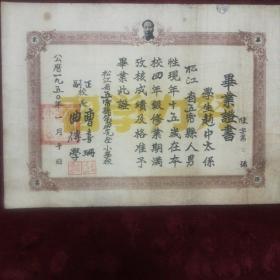 畢業證書
陸字第 號
學生趙中太係
松江省五常縣人男
性現年十五歲在本
校四年級修業期滿
攷核成績及格准予
畢業此證
松江省五常縣 完全小學校
正校長 曹喜珊
副校長 曲傳學
公曆一九五〇年一月十日